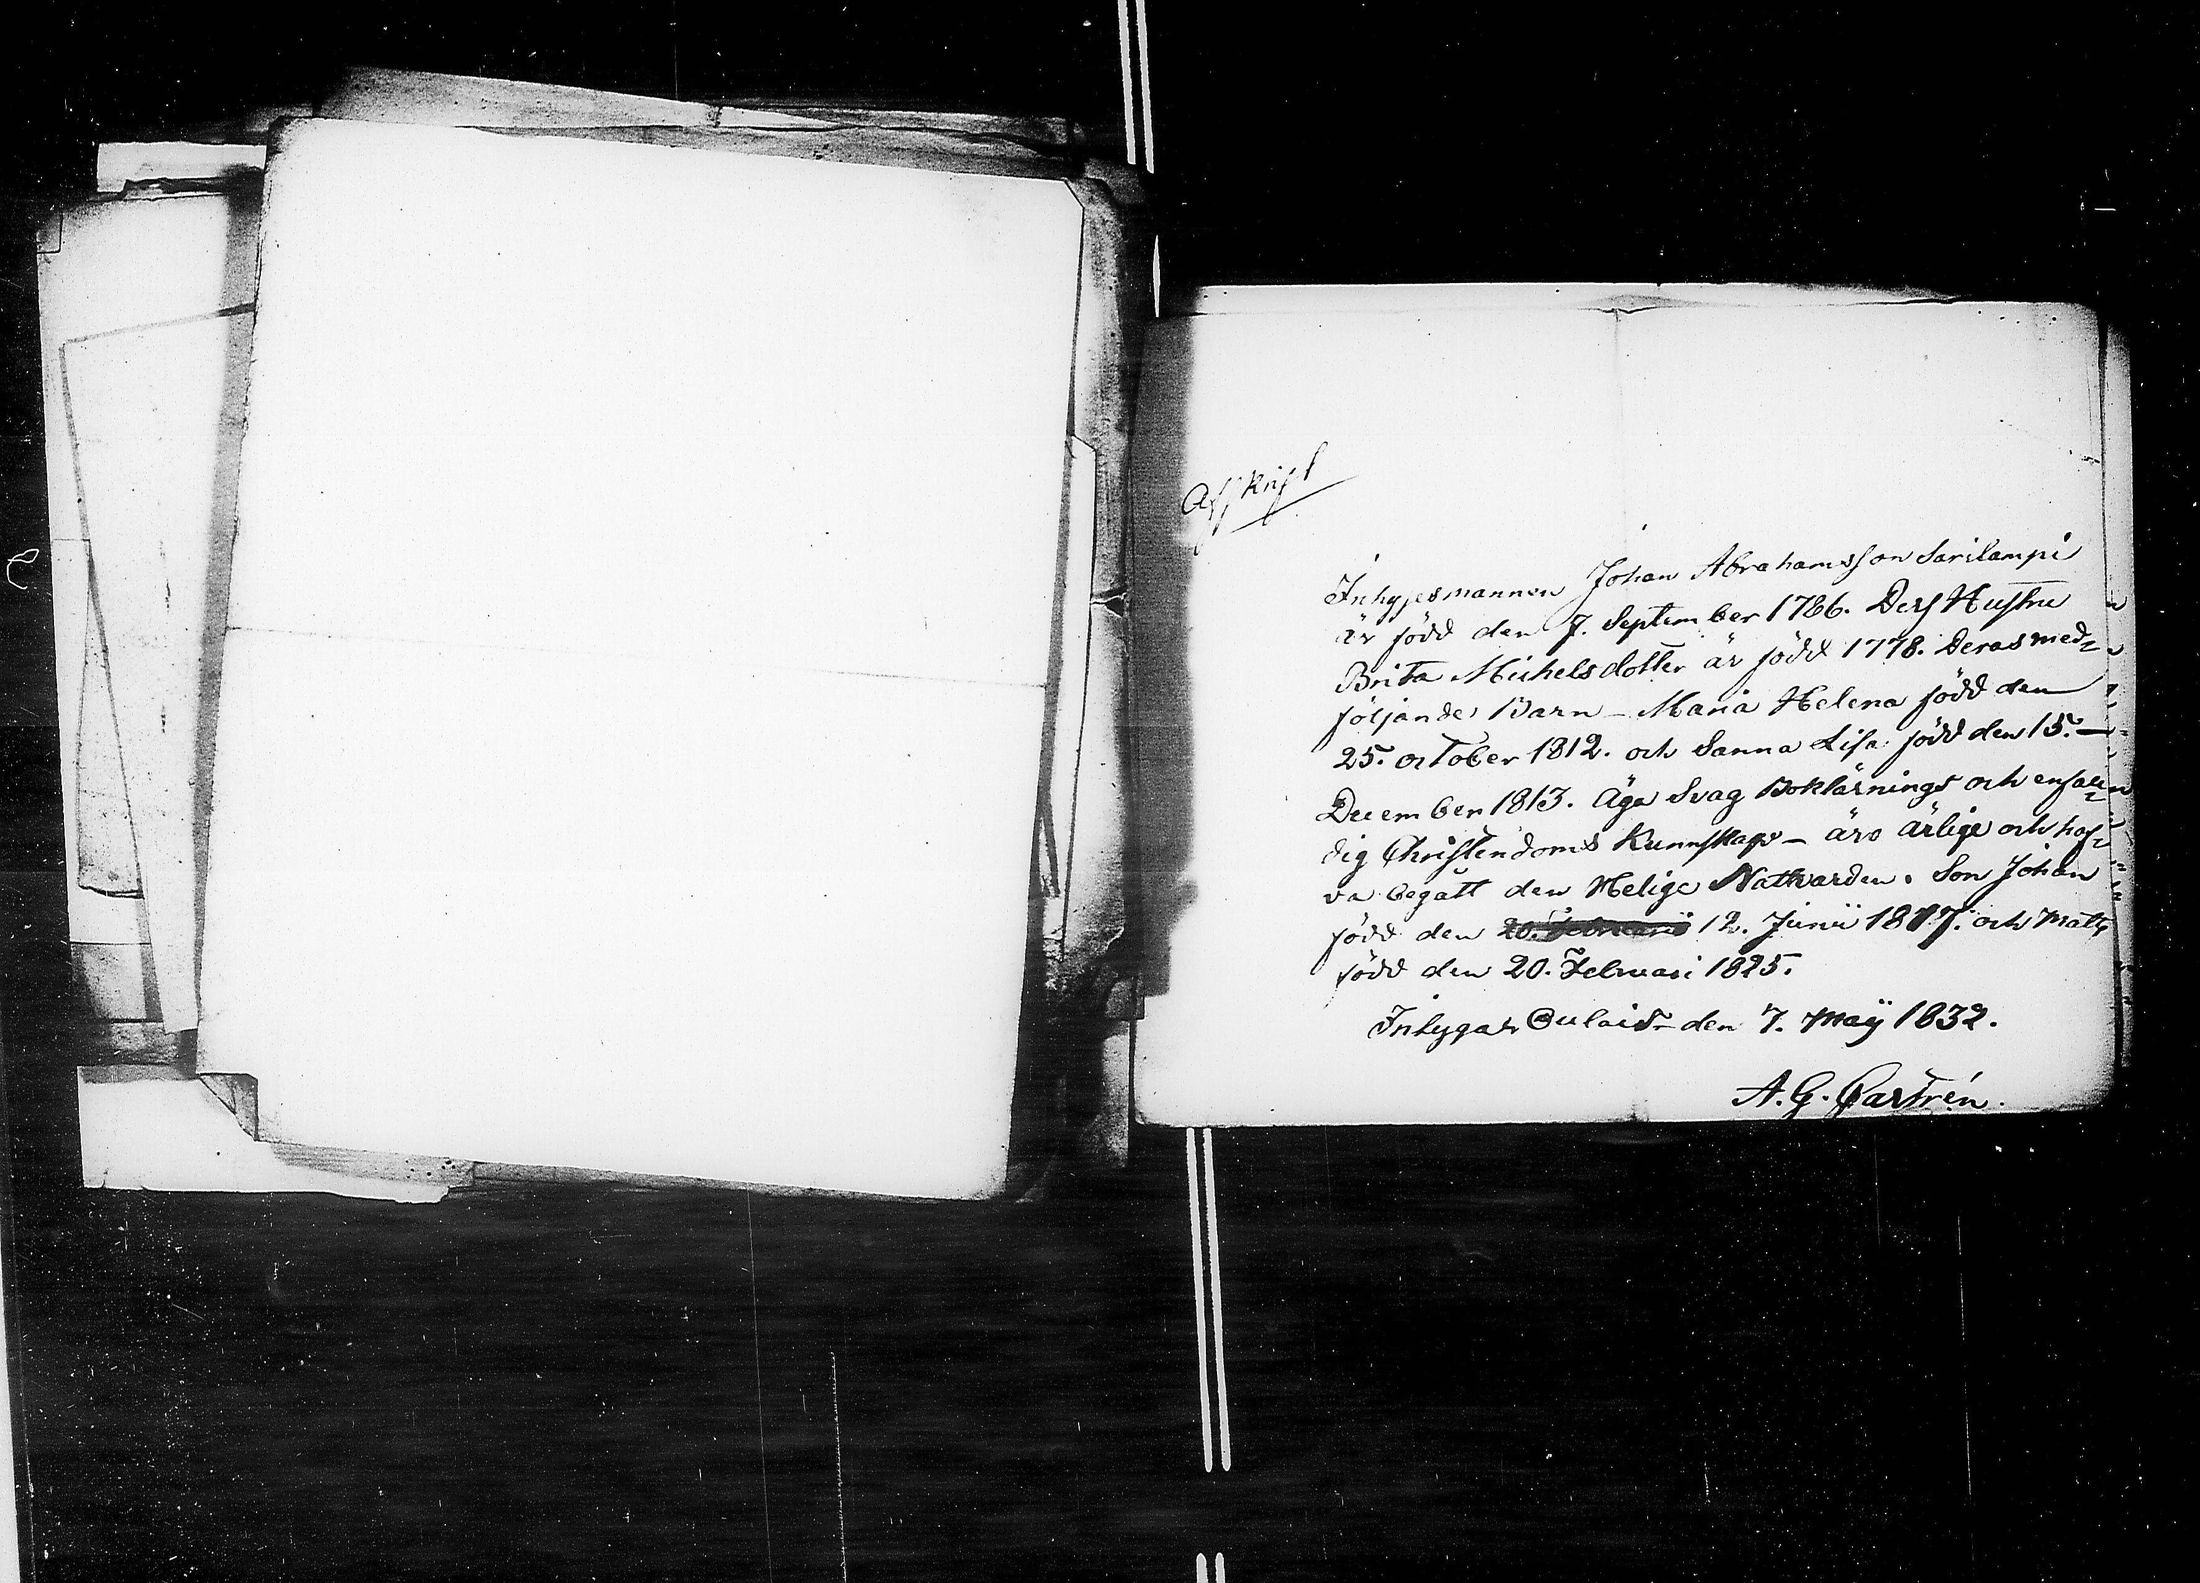 Afskrift
Inhysesmannen Johan Abrahamsson Sarilampi
är född den 7. September 1786. Dess Hustru
Brita Michelsdotter är född 1778. Deras med=
följande Barn – Maria Helena född den
25. october 1812. och Sanna Lisa född den 15. –
December 1813. Äga Svag Boklärnings och enfal=
dig Christendoms Kunnskap – äro ärlige och haf=
va begått den Helige Nattvarden. Son Johan
född den 20. Februarii 12. Junii 1817. och Matts
född den 20. Februari 1825.
Intygar Oulais den 7. Maÿ 1832.
A. G. Castrén.